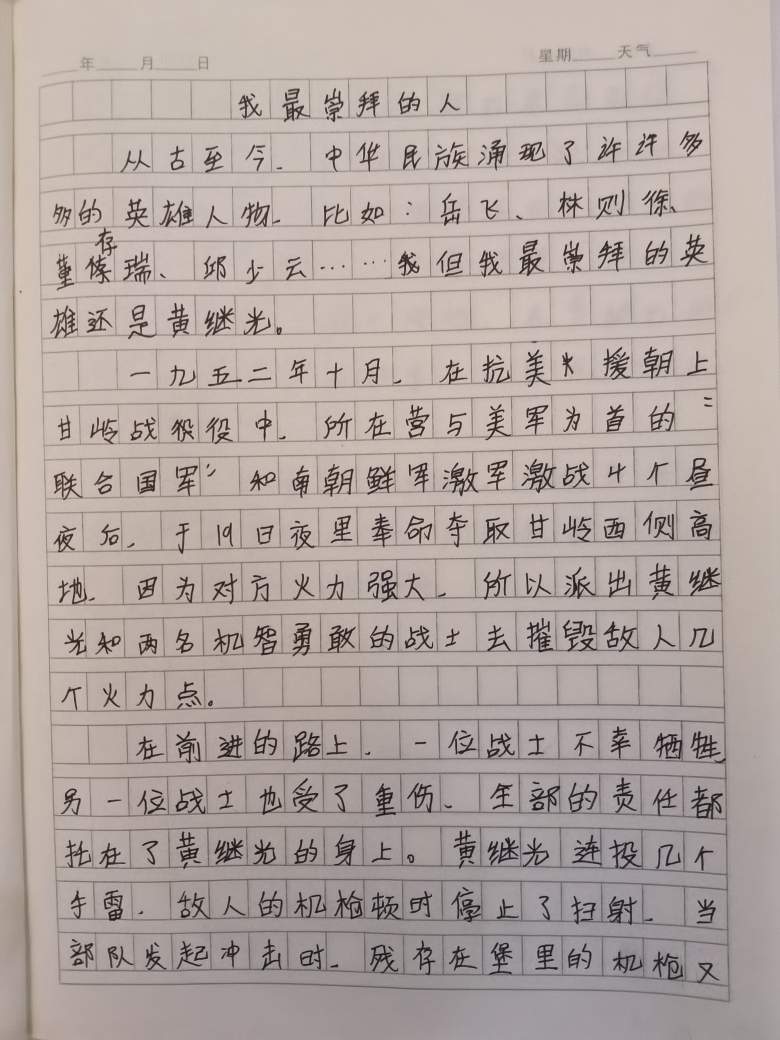 年 月 日 星期 天气
我最崇拜的人
从古至今，中华民族涌现了许许多
多的英雄人物，比如：岳飞、林则徐、
董存瑞、邱少云……我但我最崇拜的英
雄还是黄继光。
一九五二年十月，在抗美援朝上
甘岭战役役中，所在营与美军为首的“
联合国军”和南朝鲜军激军激战4个昼
夜后，于19日夜里奉命夺取甘岭西侧高
地，因为对方火力强大，所以派出黄继
光和两名机智勇敢的战士去摧毁敌人几
个火力点。
在前进的路上，一位战士不幸牺牲，
另一位战士也受了重伤，全部的责任都
托在了黄继光的身上。黄继光连投几个
手雷，敌人的机枪顿时停止了扫射，当
部队发起冲击时，残存在堡里的机枪又